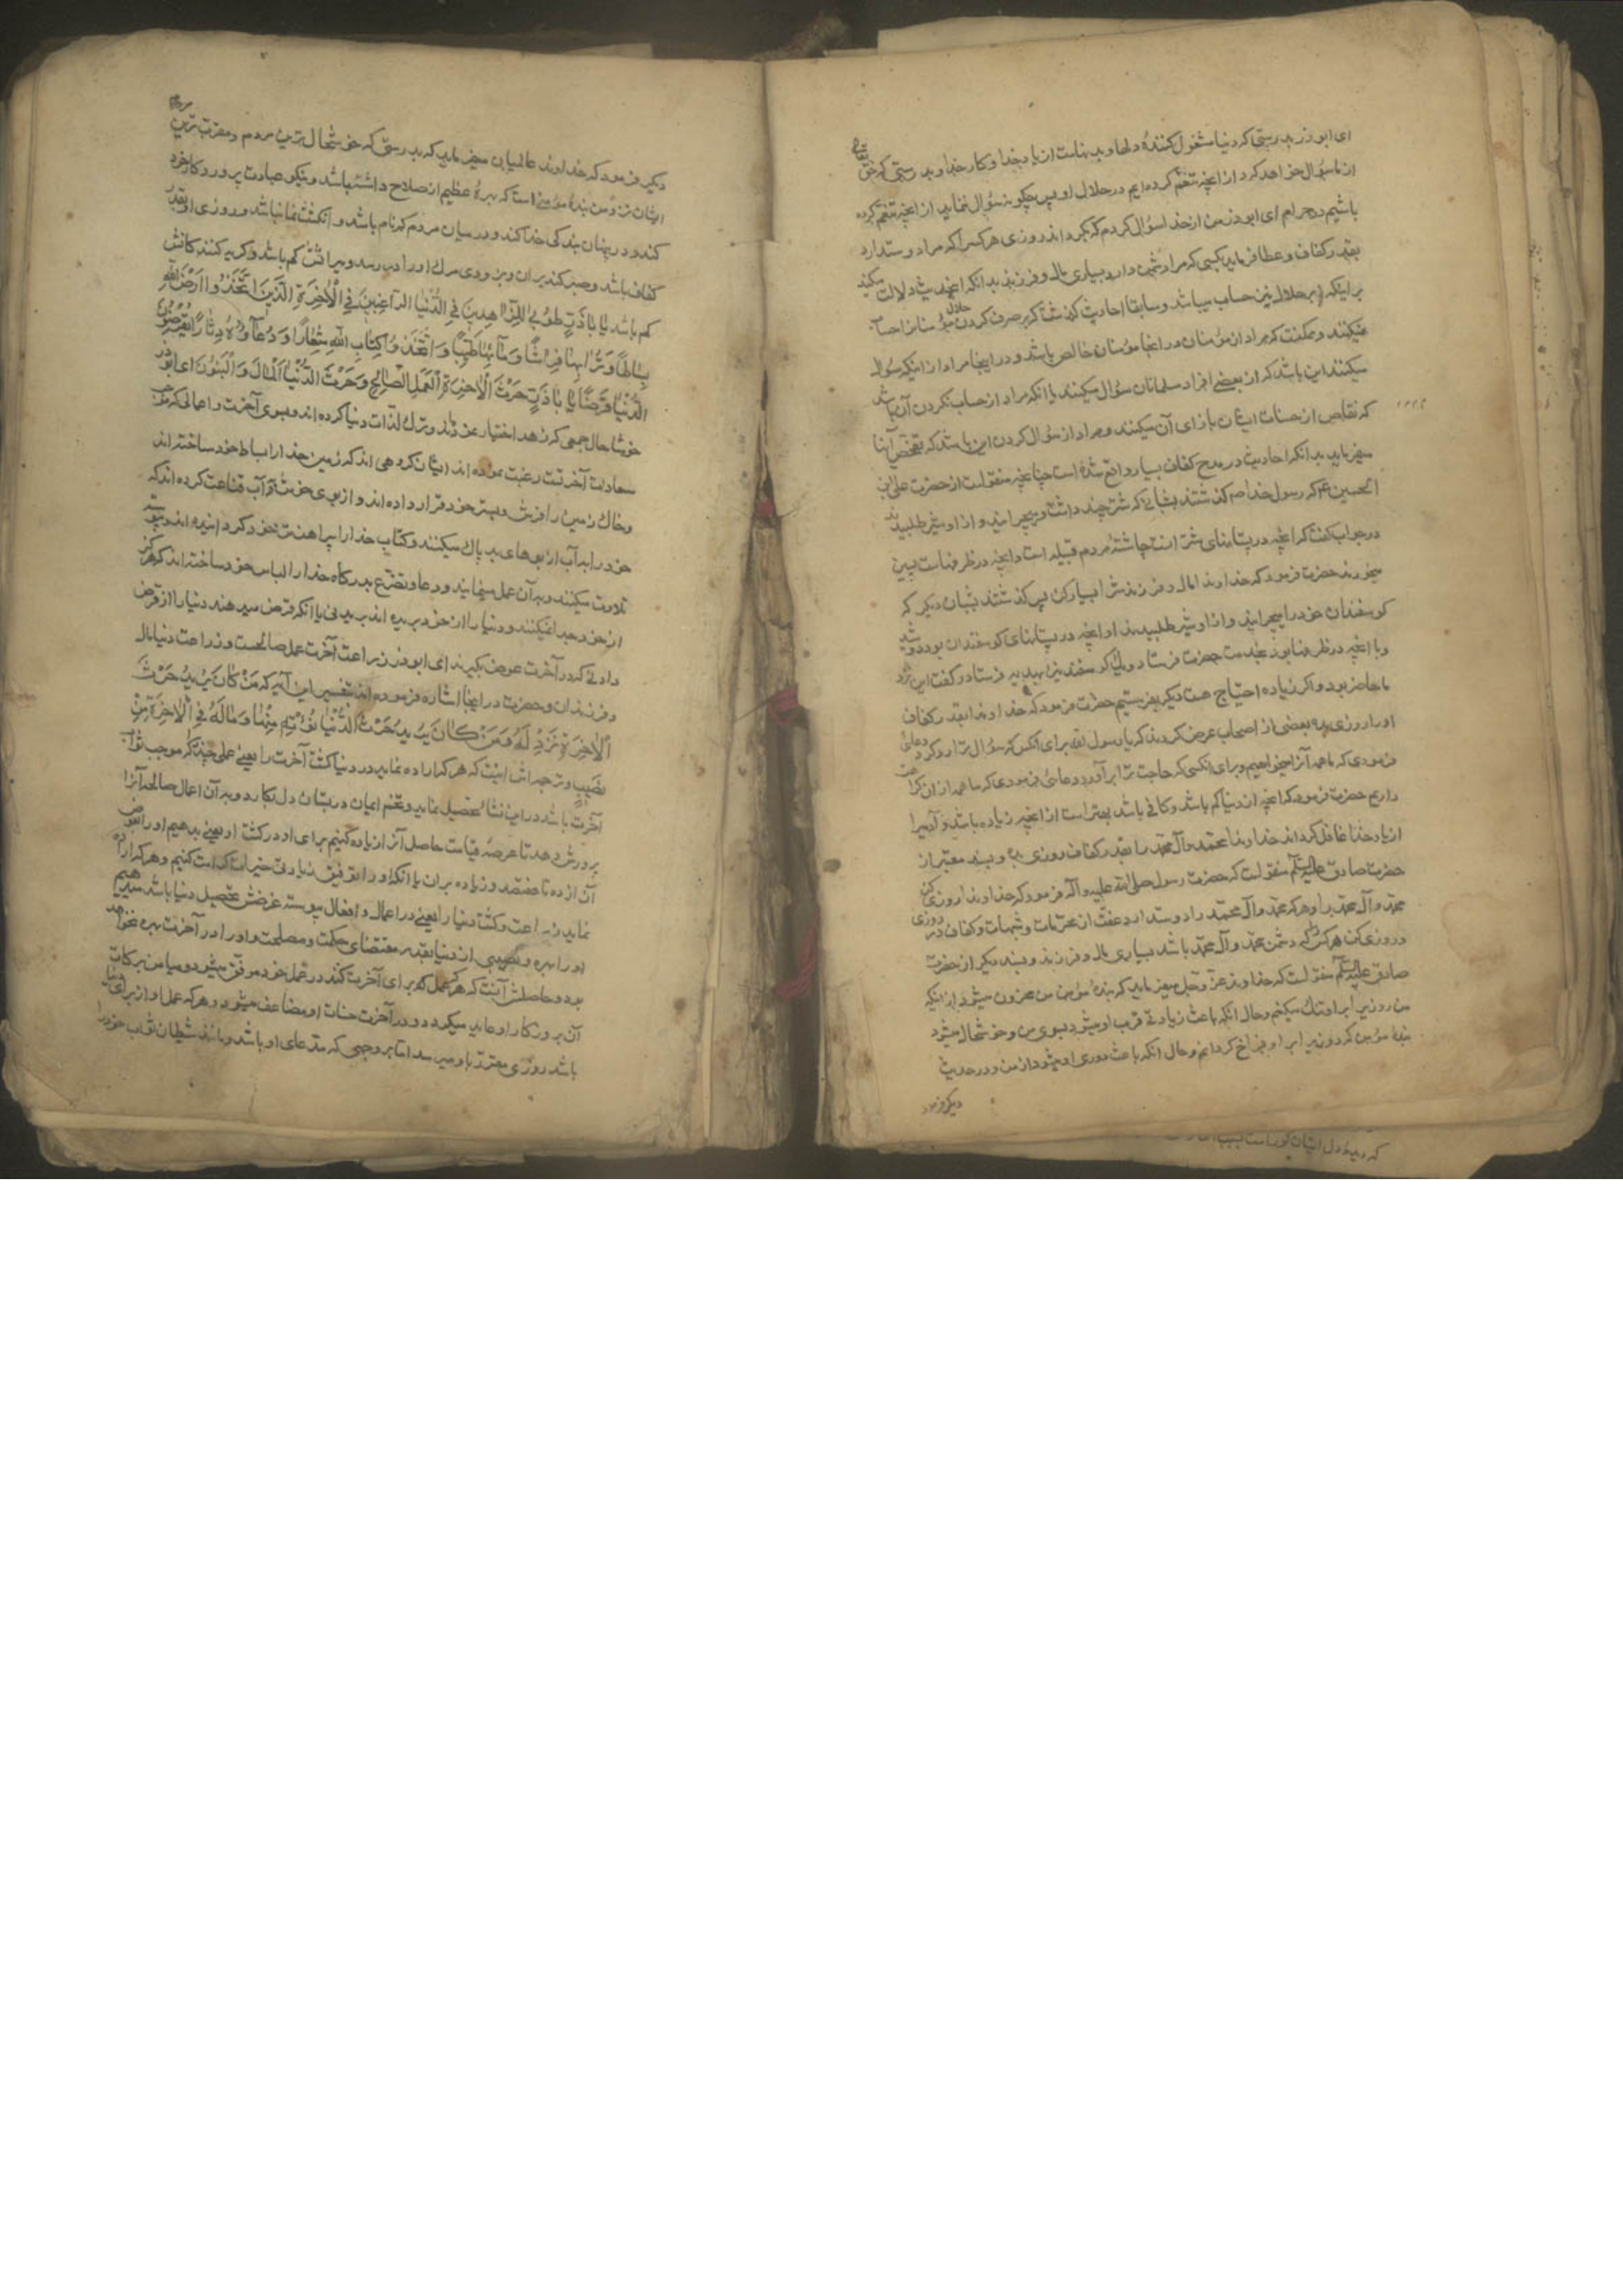 ای ابوذر بدرستی که دنیا مشغول کنندهٔ دلها و بدنهاست از یاد خدا و کار خدا و بدرستی که حق تعالی
از ما سؤال خواهد کرد از آنچه تنعم کرده‌ایم در حلال او پس چگونه سؤال ننماید از آنچه تنعم کرده
باشیم در حرام ای ابوذر من از خدا سؤال کردم که بگرداند روزی هر کس را که مرا دوستدارد
بقدر کفاف و عطا فرماید بکسی که مرا دشمن دارد بسیاری مال و فرزند بدانکه اینحدیث دلالت میکند
بر اینکه بر حلال نیز حساب میباشد و سابقا احادیث گذشت که بر صرف کردن حلال مؤمنانرا حساب
نمیکنند و ممکنست که مراد از مؤمنان در انجا مؤمنان خالص باشد و در اینجا مراد از اینکه سؤال
میکنند این باشد که از بعضی افراد مسلمانان سؤال میکنند یا انکه مراد از حساب نکردن آن باشد
که نقاص از حسنات ایشان بازای آن نمیکنند و مراد از سؤال کردن این باشد که تفحص آنها
میفرماید بدانکه احادیث در مدح کفاف بسیار واقع شده است چنانچه منقولست از حضرت علی ابن
الحسین ع که رسول خدا ص گذشتند بشبانی که شتر چند داشت و میچرانید و از او شیر طلبیدند
در جواب گفت که آنچه در پستانهای شتر است چاشت مردم قبیله است و آنچه در ظرفهاست پسین
میخورند حضرت فرمود که خداوندا مال و فرزندش را بسیار کن پس گذشتند بشبان دیگر که
گوسفندان خود را میچرانید و از او شیر طلبیدند او آنچه در پستانهای گوسفندان بود دوشید
و با آنچه در ظرفها بود بخدمت حضرت فرستاد و یک گوسفند نیز بهدیه فرستاد و گفت این نزد
ما حاضر بود و اگر زیاده احتیاج هست دیگر بفرستیم حضرت فرمود که خداوندا بقدر کفاف
او را روزی بده بعضی از اصحاب عرض کردند که یا رسول الله برای آنکس که سؤال ترا رد کرد دعائی
فرمودی که ما همه آنرا میخواهیم و برای انکسی که حاجت ترا برآورد دعائی فرمودی که ما همه از ان کراهت
داریم حضرت فرمود که آنچه از دنیا کم باشد و کافی باشد بهتر است از آنچه زیاده باشد و آدمیرا
از یاد خدا غافل گرداند خداوندا محمد و آل محمد را بقدر کفاف روزی بده و بسند معتبر از
حضرت صادق علیه السلام منقولست که حضرت رسول صلی الله علیه و آله فرمود که خداوندا روزی کن
محمد و آل محمد را و هر که محمد و آل محمد را دوست دارد عفت از محرمات و شبهات و کفاف در روزی
و روزی کن هر کس که دشمن محمد و آل محمد باشد بسیاری مال و فرزند و بسند دیگر از حضرت
صادق علیه السلام منقولست که خداوند عز و جل میفرماید که بندهٔ مؤمن من محزون میشود از اینکه
من روزیرا بر او تنگ میکنم و حال انکه باعث زیادتی قرب او میشود بسوی من و خوشحال میشود
بندهٔ مؤمن که روزیرا بر او فراخ گردانم و حال انکه باعث دوری او میشود از من و در حدیث
دیگر فرمود
دیگر فرمود که خداوند عالمیان میفرماید که بدرستی که خوشحال ترین مردم و مقرب ترین مردم
ایشان نزد من بندهٔ مؤمنی است که بهرهٔ عظیم از صلاح داشته باشد و نیکو عبادت پروردگار خود
کند و در پنهان بندگی خدا کند و در میان مردم گم نام باشد و انگشت نما نباشد و روزی او بقدر
کفاف باشد و صبر کند بران و بزودی مرگ او را در رسد و میراثش کم باشد و گریه کنندگانش
کم باشد یا اباذر طوبی للزاهدین فی الدنیا الراغبین فی الاخرة الذین اتخذوا ارض الله
بساطا و ترابها فراشا و ماءها طیبا و اتخذوا کتاب الله شعارا و دعاءه دثارا یقرضون
الدنیا قرضا یا اباذر حرث الاخرة العمل الصالح و حرث الدنیا المال و البنون ای ابوذر
خوشا حال جمعی که زهد اختیار نموده‌اند و ترک لذات دنیا کرده‌اند و بسوی آخرت و اعمالی که مثمر
سعادت آخرتست رغبت نموده‌اند ایشان گروهی اند که زمین خدا را بساط خود ساخته‌اند
و خاک زمین را فرش و بستر خود قرار داده‌اند و از بوی خوش بآب قناعت کرده‌اند که
خود را بآب از بوهای بد پاک میکنند و کتاب خدا را پیراهن تن خود گردانیده‌اند و پیوسته
تلاوت میکنند و بآن عمل مینمایند و دعا و تضرع بدرگاه خدا را لباس خود ساخته‌اند که هرگز
از خود جدا نمیکنند و دنیا را از خود بریده‌اند بریدنی یا انکه قرض میدهند دنیا را از قرض
دادنی که در آخرت عوض بگیرند ای ابوذر زراعت آخرت عمل صالحست و زراعت دنیا مال
و فرزندان و حضرت در اینجا اشاره فرموده‌اند بتفسیر این آیه که من کان یرید حرث
الاخرة نزد له و من کان یرید حرث الدنیا نؤته منها و ماله فی الاخرة من
نصیب و ترجمه‌اش اینست که هر که اراده نماید در دنیا کشت آخرت را یعنی عملی چند که موجب ثواب
آخرت باشد در این نشأ تحصیل نماید و تخم ایمان در بستان دل بکارد و به آن اعمال صالحه آنرا
پرورش دهد تا عرصهٔ قیامت حاصل آنرا زیاده کنیم برای او در کشت او یعنی بدهیم او را بعوض
آن از ده تا هفتصد و زیاده بران یا انکه او را توفیق زیادتی خیرات کرامت کنیم و هر که اراده
نماید زراعت و کشت دنیا را یعنی در اعمال و افعال پیوسته غرضش تحصیل دنیا باشد میدهیم
او را بهره و نصیبی از دنیا بقدر مقتضای حکمت و مصلحت و او را در آخرت بهره نخواهد
بود و حاصلش آنست که هر که عمل که برای آخرت کند در عمل خود موفق میشود و میامن برکات
آن بروزگار او عاید میگردد و در آخرت حسنات او مضاعف میشود و هر که عمل او از برای دنیا
باشد روزی مقدر باو میرسد اما نه بر وجهی که مدعای او باشد و مانند شیطان ثواب خود را